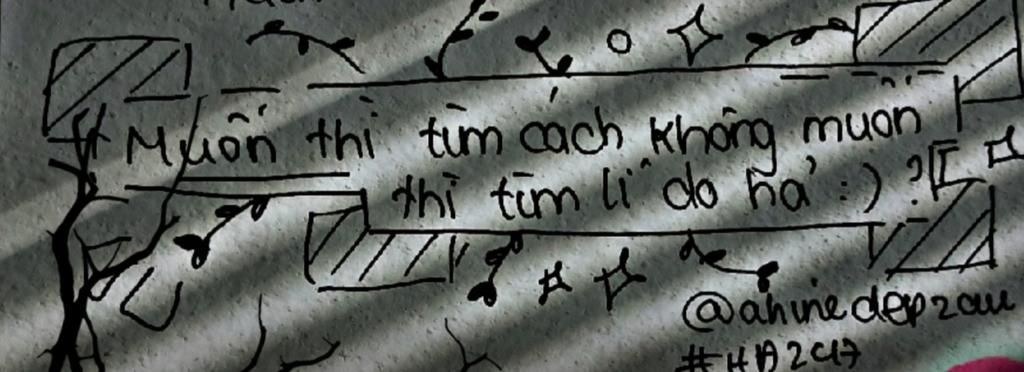 Muốn thì tìm cách không muốn
thì tìm lí do hả :) ?
@ahinedepzau